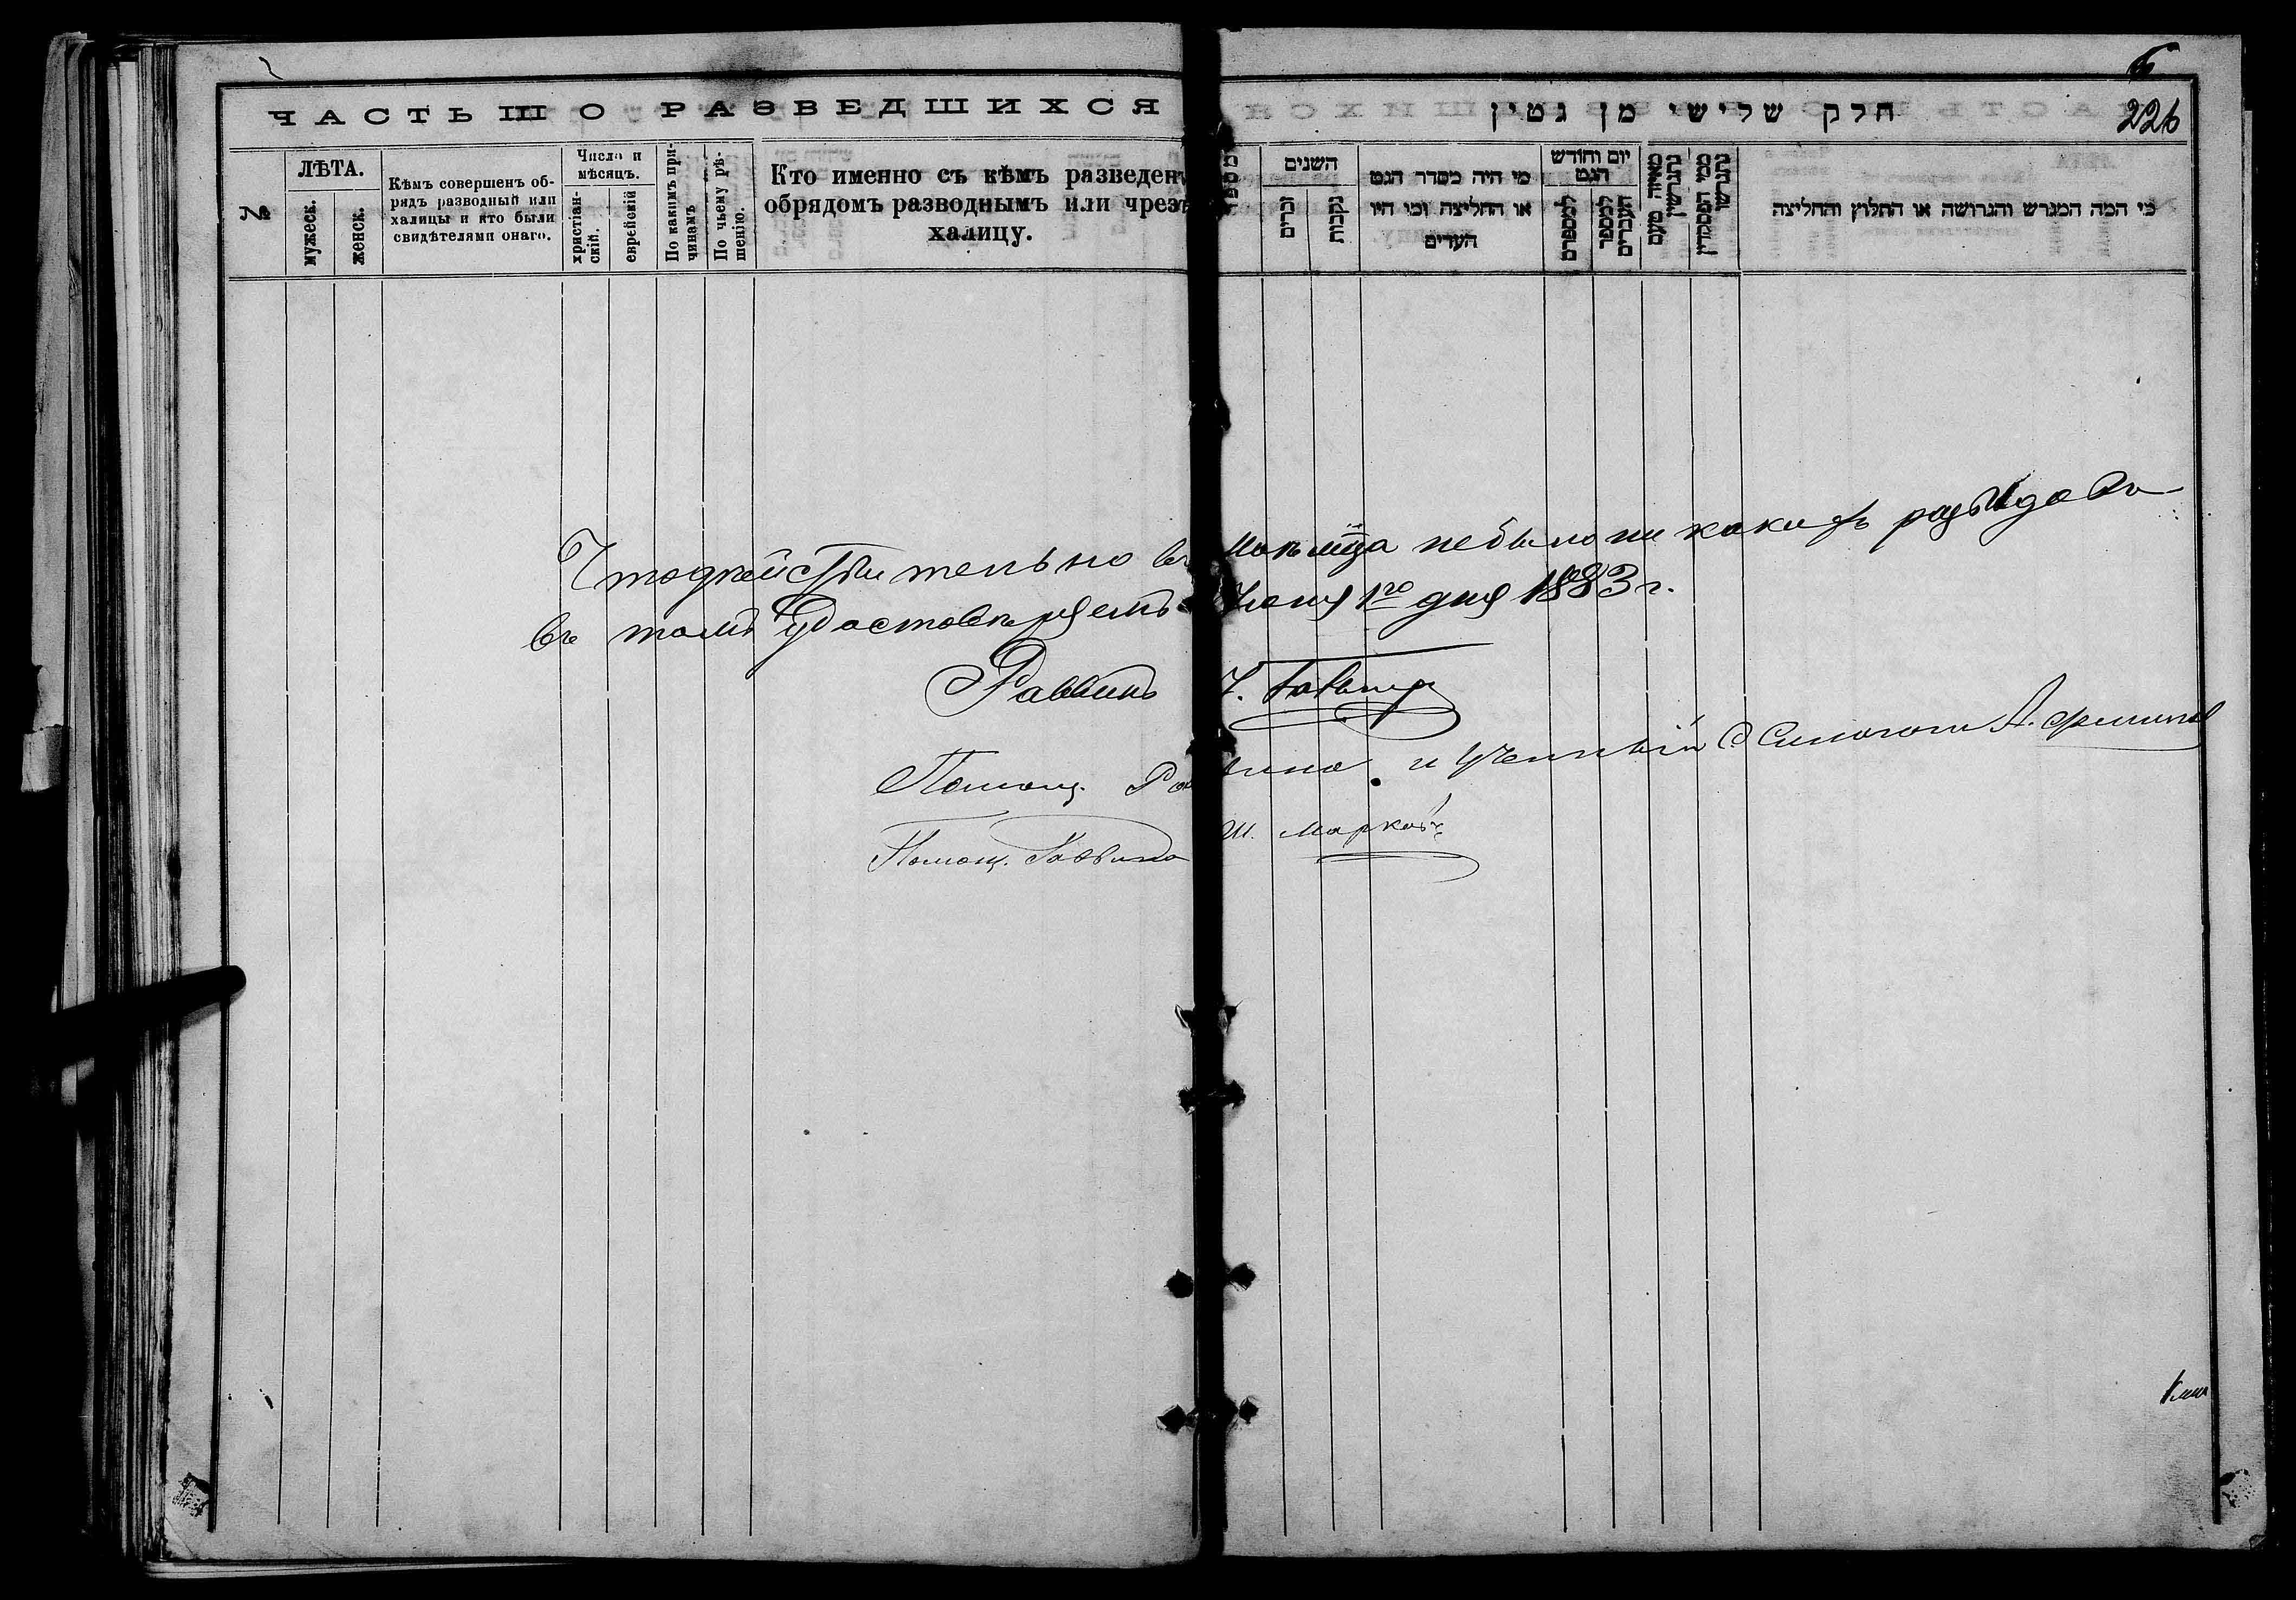 ЧАСТЬ III О РАЗВЕДШИХСЯ
חלק שלישי מן גטין
226
№
ЛѢТА.
мужеск.
женск.
Кѣмъ совершенъ об-
рядъ разводный или
халицы и кто были
свидѣтелями онаго.
Число и
мѣсяцъ.
христіан-
скій.
еврейскій
По какимъ при-
чинамъ
По чьему рѣ-
шенію.
Кто именно съ кѣмъ разведенъ
обрядомъ разводнымъ или чрезъ
халицу.
השנים
זכרים
נקבות
מי היה מסדר הגט
או החליצה ומי היו
העדים
יום וחודש
הגט
למספרם
למספר
העברים
מאיזה טעם
נתגרשו
מי המה המגרש והגרושה או החלוץ והחליצה
Что дѣйствительно въ м-цѣ не было ни какихъ разводовъ
въ томъ удостовѣряемъ Іюня 1го дня 1883 г.
Раввинъ
Помощ. Раввина и ученный Синагоги А.
Помощ. Раввина Ш. Марков